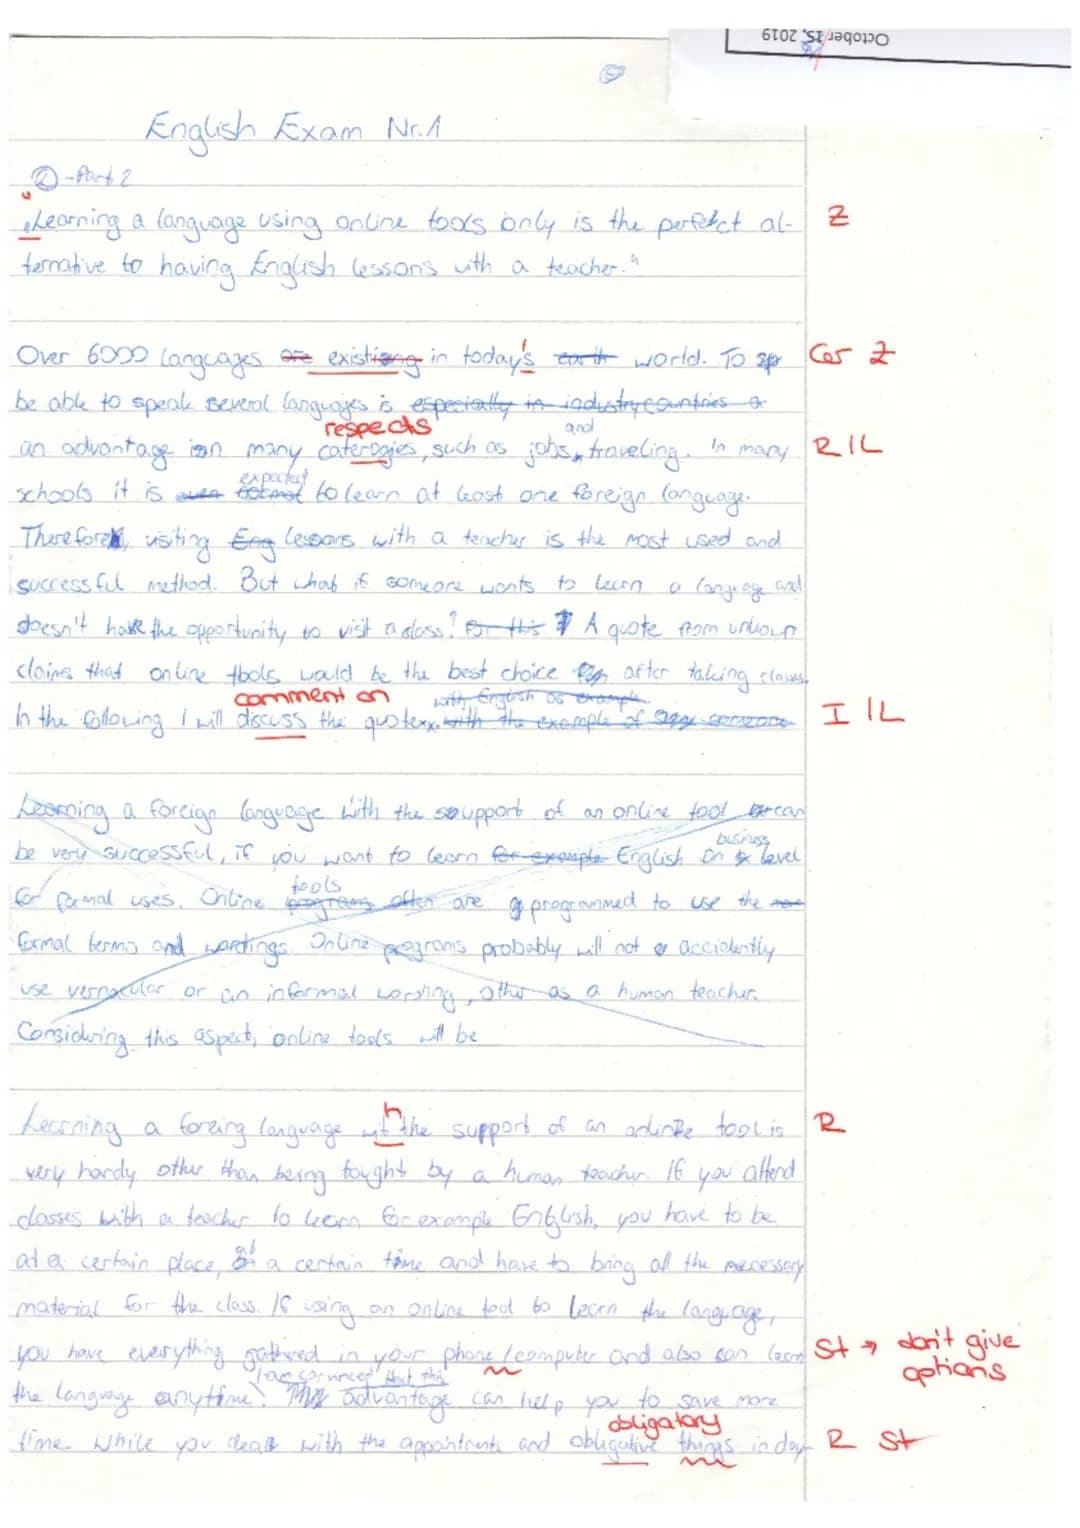 October 15, 2019
English Exam Nr. 1
② - Part 2
„Learning a language using online tools only is the perfekct al- Z
ternative to having English lessons with a teacher."
Over 6000 languages are existiong in today's earth world. To Ger Z
be able to speak several languages is especially in industry countries
respects and
an advantage in many caterogies, such as jobs, traveling. In many R/L
expected
schools it is even to learn at least one foreign language.
Therefore, visiting Eng lessons with a teacher is the most used and
successful method. But what if someone wants to learn a language and
doesn't have the opportunity to visit a class? For this A quote from unkown
claims that online tools would be the best choice after taking classes.
comment on with English as example.
In the following I will discuss the quote with the example of I/L
Learning a foreign language with the soupport of an online tool can
business
be very successful, if you want to learn for example English on level
tools
for formal uses. Online programs often are programmed to use the
formal terms and wordings. Online programs probably will not accidently
use vernacular or an informal wording, other as a human teacher.
Considering this aspect, online tools will be
h
Learning a foreing language wit the support of an online tool is R
very handy other than being tought by a human teacher. If you attend
classes with a teacher to learn for example English, you have to be
at a certain place, at a certain time and have to bring all the necessary
material for the class. If using an online tool to learn the language,
you have everything gathered in your phone/computer and also can learn St → don't give options
I am convinced that this
the language anytime. This advantage can help you to save more
obligatory
time. While you deal with the appointments and obligative things in day- R St